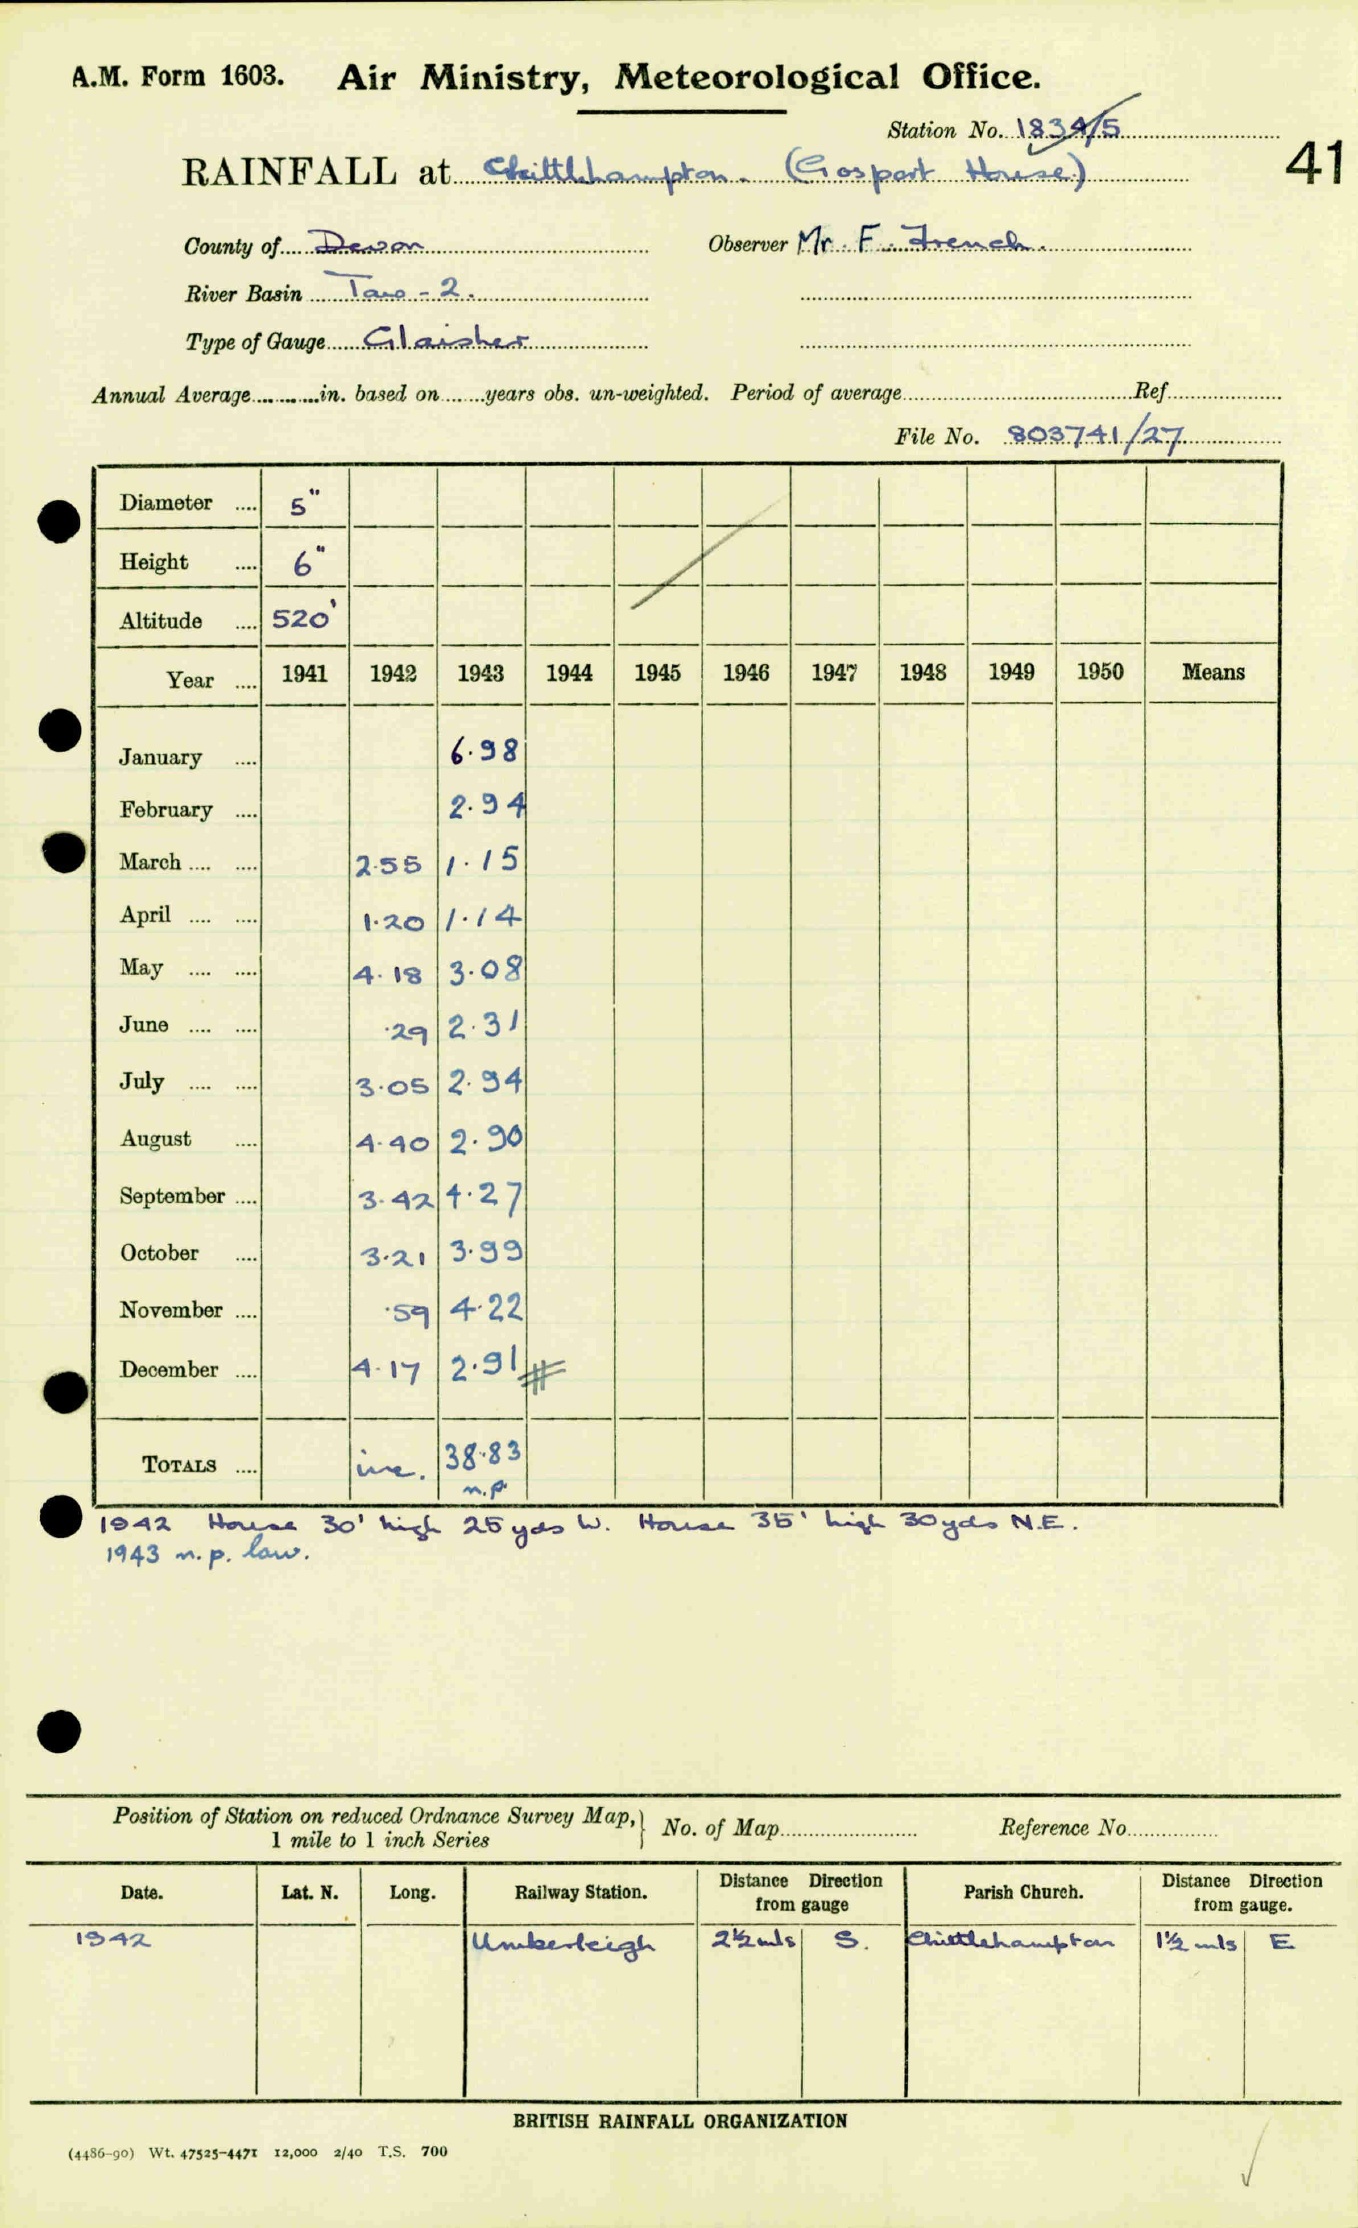 A.M. Form 1603. Air Ministry, Meteorological Office.
Station No. 1834/5
RAINFALL at Chittlehampton. (Gosport House)
41
County of Devon Observer Mr. F. French.
River Basin Taw - 2.
Type of Gauge Glaisher
Annual Average in. based on years obs. un-weighted. Period of average Ref.
File No. 803741/27
Diameter 5"
Height 6"
Altitude 520'
Year 1941 1942 1943 1944 1945 1946 1947 1948 1949 1950 Means
January 6.98
February 2.94
March 2.55 1.15
April 1.20 1.14
May 4.18 3.08
June .29 2.31
July 3.05 2.94
August 4.40 2.90
September 3.42 4.27
October 3.21 3.99
November .59 4.22
December 4.17 2.91 #
TOTALS inc. 38.83
n.p
1942 House 30' high 25 yds W. House 35' high 30 yds N.E.
1943 n.p. low.
Position of Station on reduced Ordnance Survey Map, 1 mile to 1 inch Series } No. of Map Reference No.
Date. Lat. N. Long. Railway Station. Distance Direction from gauge Parish Church. Distance Direction from gauge.
1942 Umberleigh 2½ mls S. Chittlehampton 1½ mls E
BRITISH RAINFALL ORGANIZATION
(4486-90) Wt. 47525-4471 12,000 2/40 T.S. 700